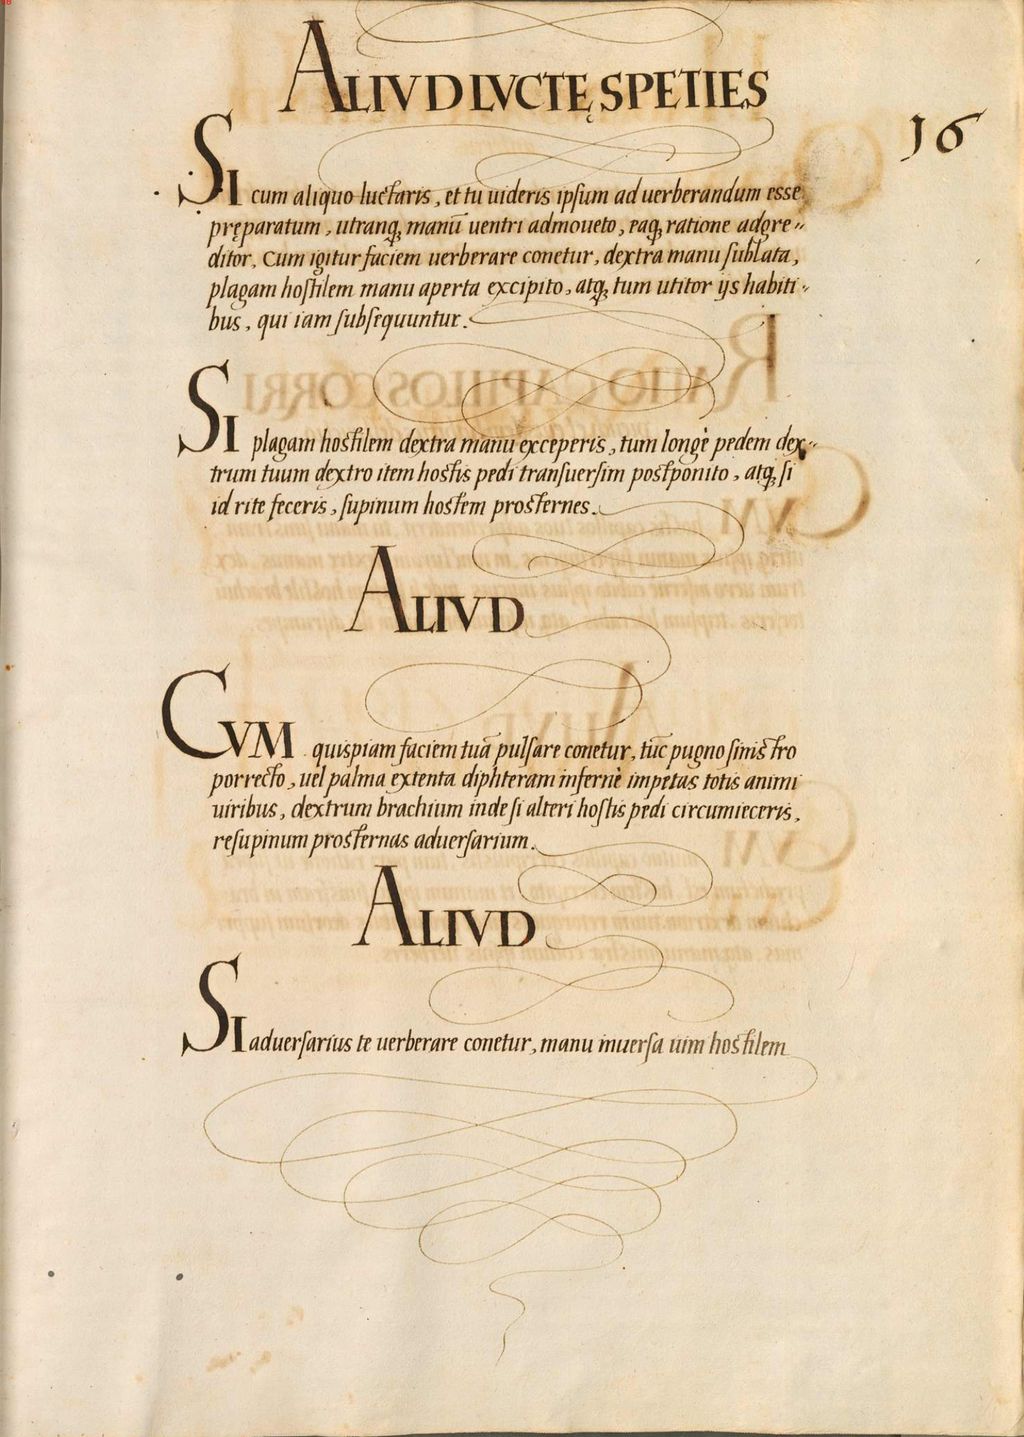 ALIVD LVCTĘ SPETIES
16
SI cum aliquo luctaris, et tu uideris ipsum ad uerberandum esse
pręparatum, utranq; manū uentri admoueto, eaq; ratione adgre=
ditor, Cum igitur faciem uerberare conetur, dextra manu sublata,
plagam hostilem manu aperta excipito, atq; tum utitor ijs habiti=
bus, qui iam subsequuntur.
SI plagam hostilem dextra manu exceperis, tum longè pedem dex=
trum tuum dextro item hostis pedi transuersim postponito, atq; si
id rite feceris, supinum hostem prosternes.
ALIVD
CVM quispiam faciem tuā pulsare conetur, tūc pugno sinistro
porrecto, uel palma extenta diphteram infernè impetas totis animi
uiribus, dextrum brachium inde si alteri hostis pedi circumieceris,
resupinum prosternas aduersarium.
ALIVD
SI aduersarius te uerberare conetur, manu inuersa uim hostilem